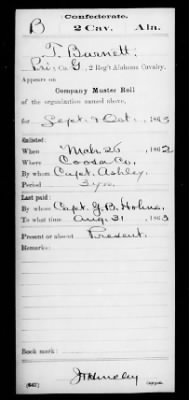 Confederate.
B 2 Cav. Ala.
T Burnett
Pri, Co. G, 2 Reg't Alabama Cavalry.
Appears on
Company Muster Roll
of the organization named above,
for Sept. & Oct., 1863
Enlisted:
When Mch 25, 1862
Where Coosa Co.
By whom Capt. Ashley.
Period 3 yrs.
Last paid:
By whom Capt. G.B. Holme
To what time Aug. 31, 1863
Present or absent Present.
Remarks:
Book mark:
(642) Copyist.